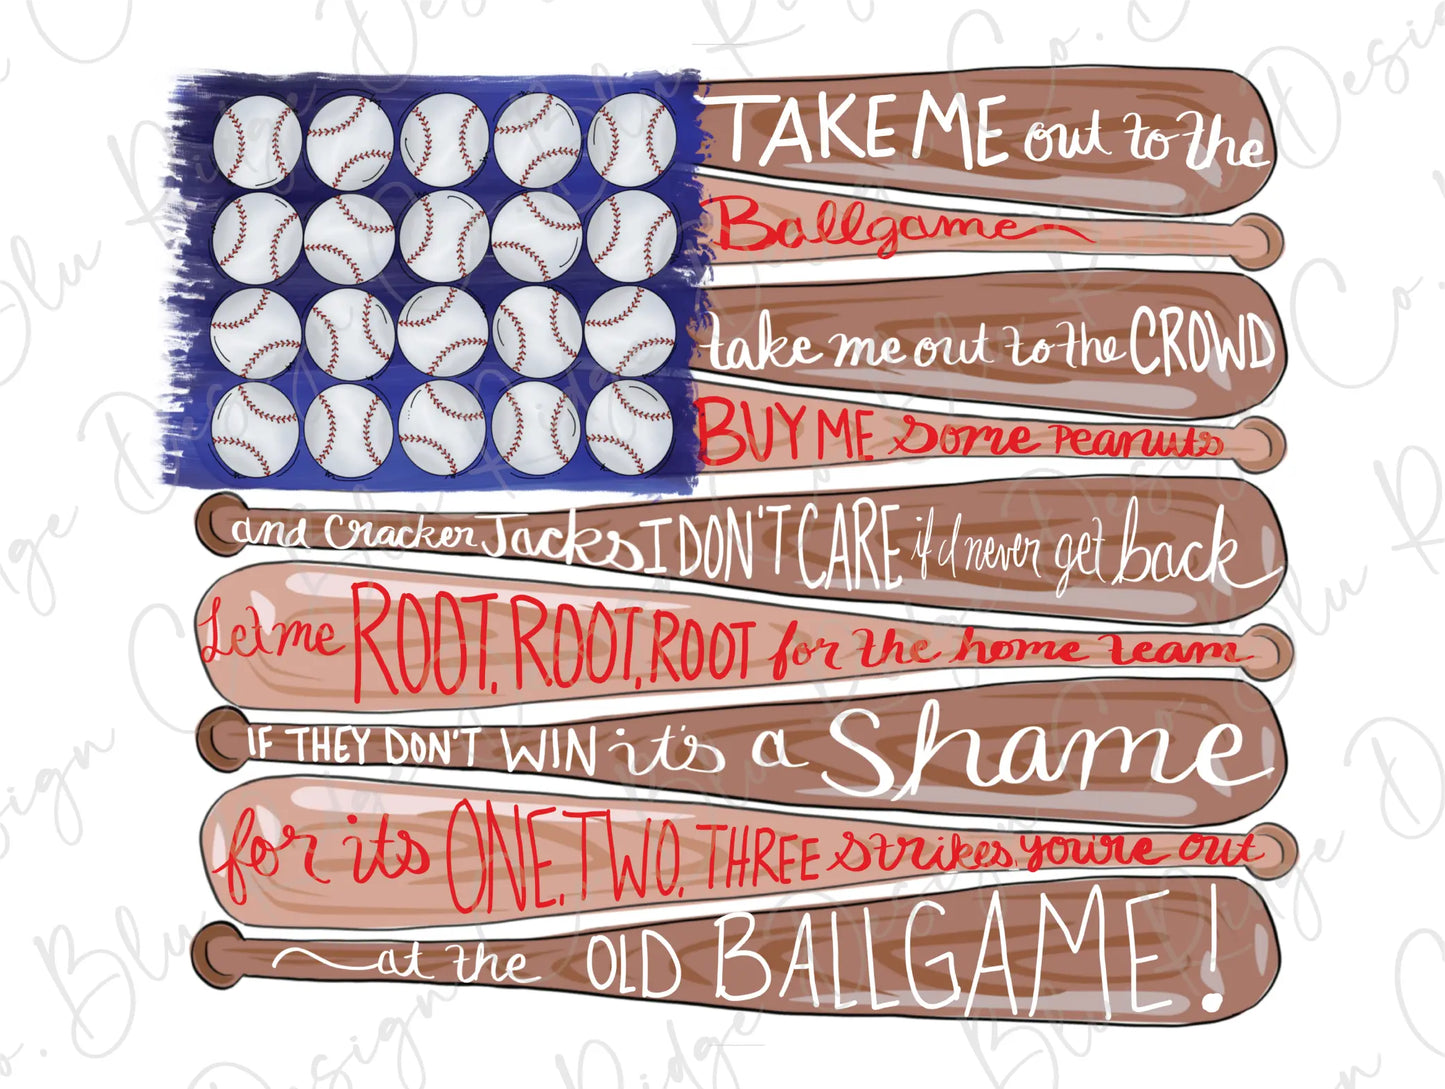 TAKE ME out to the
Ballgame
take me out to the CROWD
BUY ME some Peanuts
and Cracker Jacks I DON'T CARE if d never get back
Let me ROOT, ROOT, ROOT for the home team
IF THEY DON'T WIN it's a Shame
for its ONE, TWO, THREE strikes, you're out
at the OLD BALLGAME!
Blu Ridge Design Co.